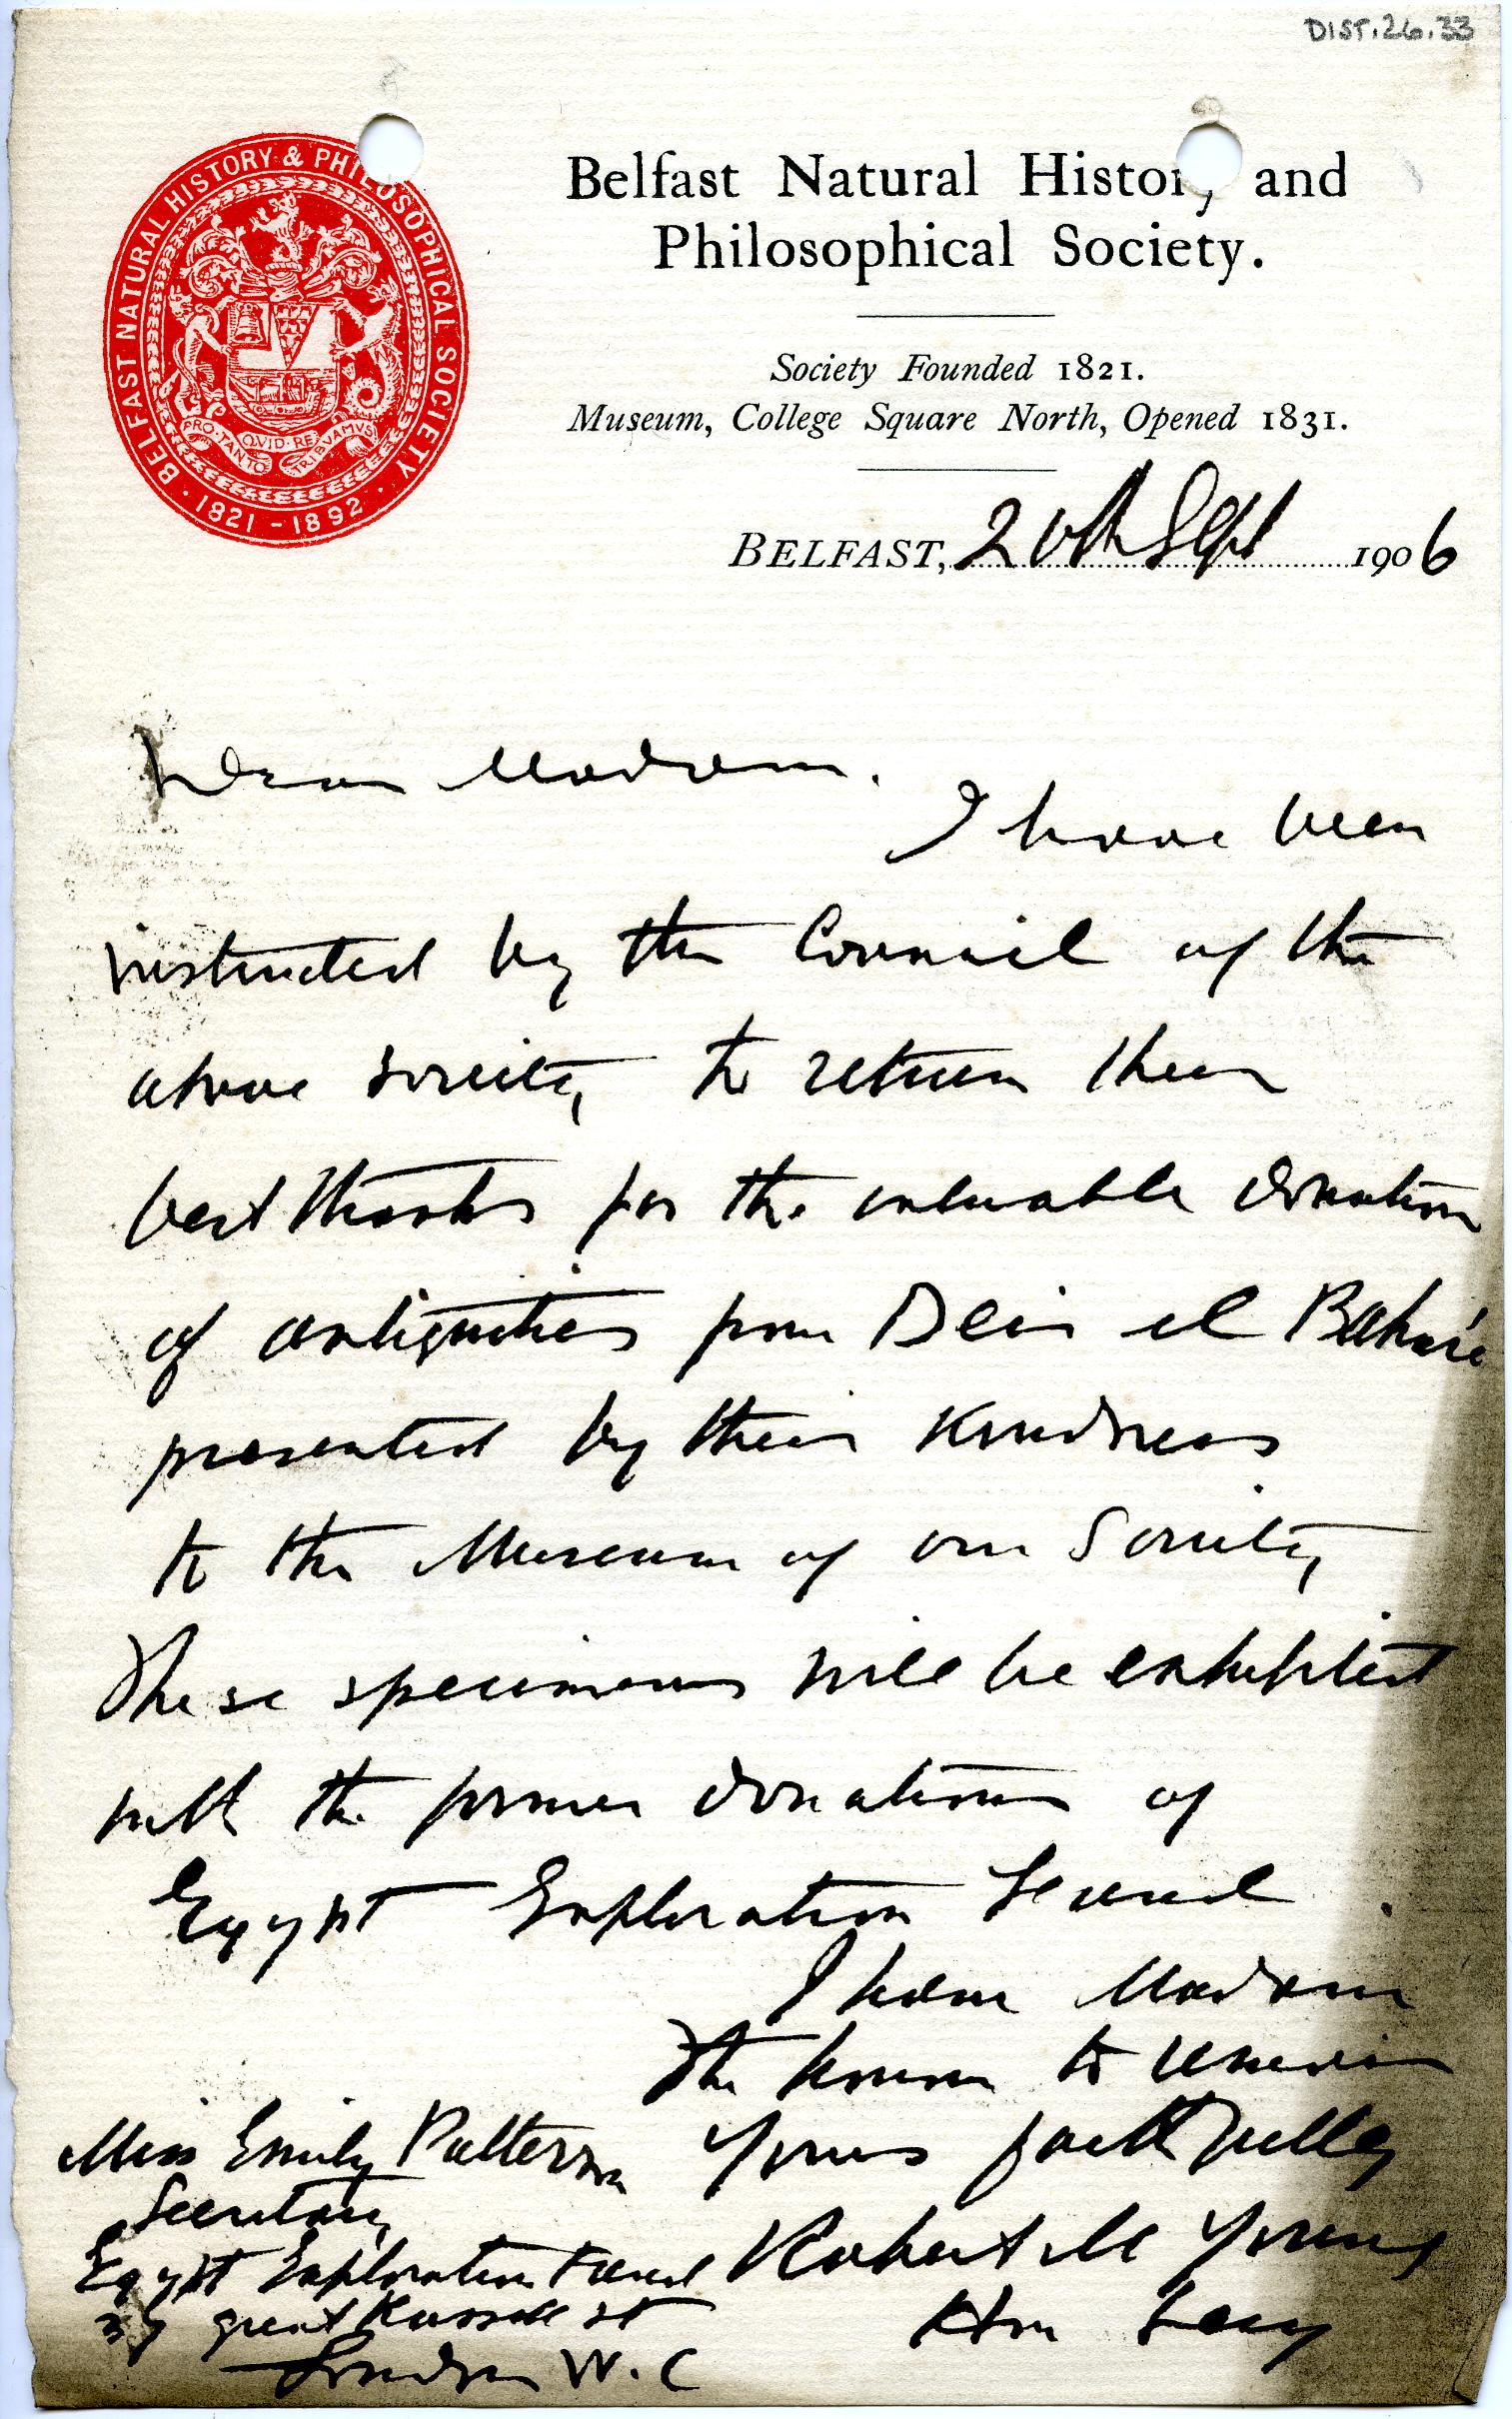 DIST.26.33
BELFAST NATURAL HISTORY & PHILOSOPHICAL SOCIETY
PRO·TANTO QVID·RETRIBVAMVS
· 1821 - 1892 ·
Belfast Natural History and
Philosophical Society.
Society Founded 1821.
Museum, College Square North, Opened 1831.
BELFAST, 20th Sept 1906
Dear Madam.
I have been
instructed by the Council of the
above society to return their
best thanks for the valuable donation
of antiquities from Deir el Bahari
presented by their kindness
to the Museum of our Society
These specimens will be exhibited
with the former donations of
Egypt Exploration Fund.
I have Madam
The honour to remain
Yours faithfully
Robert M Young
Hon Secy
Miss Emily Patterson
Secretary
Egypt Exploration Fund
37 great Russell st
London W.C